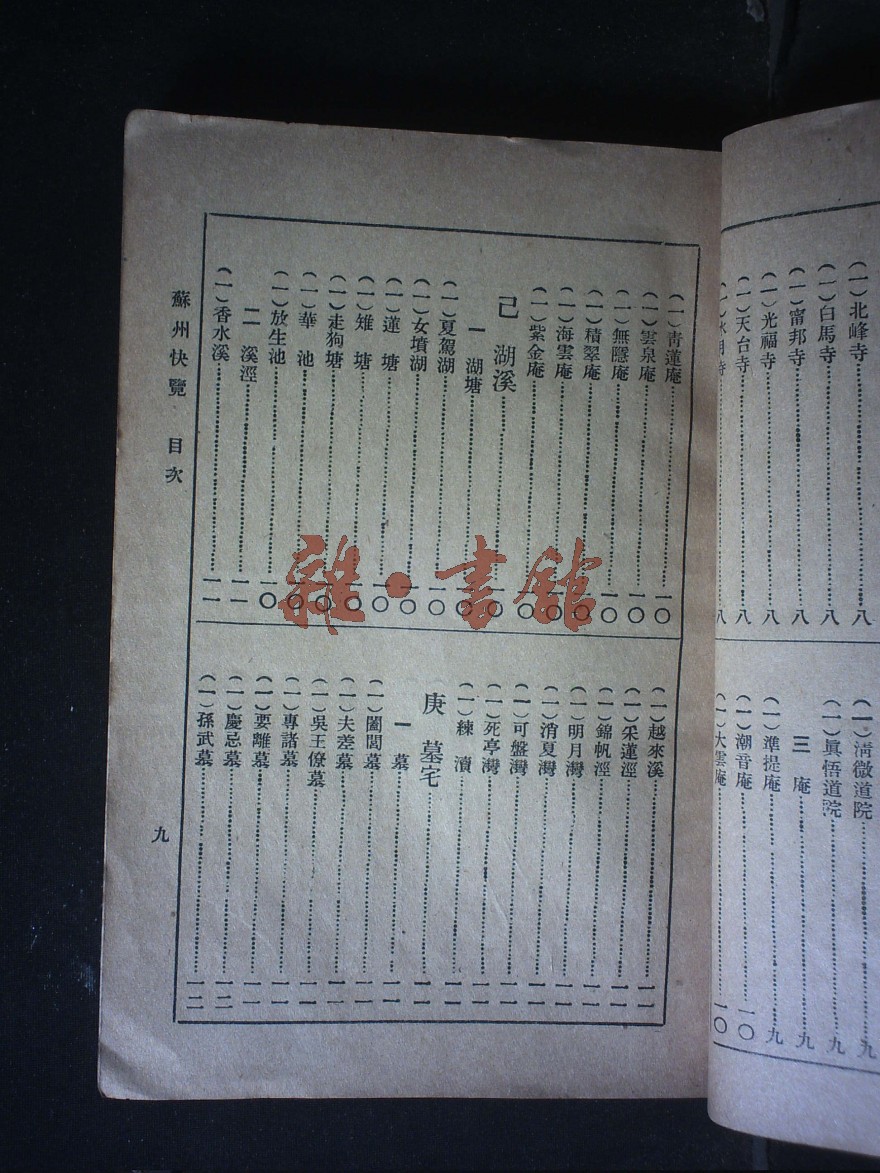 (一)北峰寺………八
(一)白馬寺………八
(一)甯邦寺………八
(一)光福寺………八
(一)天台寺………八
(一)水月寺………八
(一)清微道院………九
(一)眞悟道院………九
三 庵………九
(一)準提庵………九
(一)潮音庵………一〇
(一)大雲庵………一〇
(一)靑蓮庵………一〇
(一)雲泉庵………一〇
(一)無隱庵………一〇
(一)積翠庵………一〇
(一)海雲庵………一〇
(一)紫金庵………一〇
己 湖溪………一〇
一 湖塘………一〇
(一)夏駕湖………一〇
(一)女墳湖………一〇
(一)蓮 塘………一〇
(一)雉 塘………一〇
(一)走狗塘………一〇
(一)華 池………一〇
(一)放生池………一〇
二 溪涇………一一
(一)香水溪………一一
(一)越來溪………一一
(一)采蓮涇………一一
(一)錦帆涇………一一
(一)明月灣………一一
(一)消夏灣………一一
(一)可盤灣………一一
(一)死亭灣………一一
(一)練 瀆………一一
庚 墓宅………一一
一 墓………一一
(一)闔閭墓………一一
(一)夫差墓………一一
(一)吳王僚墓………一一
(一)專諸墓………一一
(一)要離墓………一一
(一)慶忌墓………一二
(一)孫武墓………一二
蘇州快覽 目次
九
雜·書館